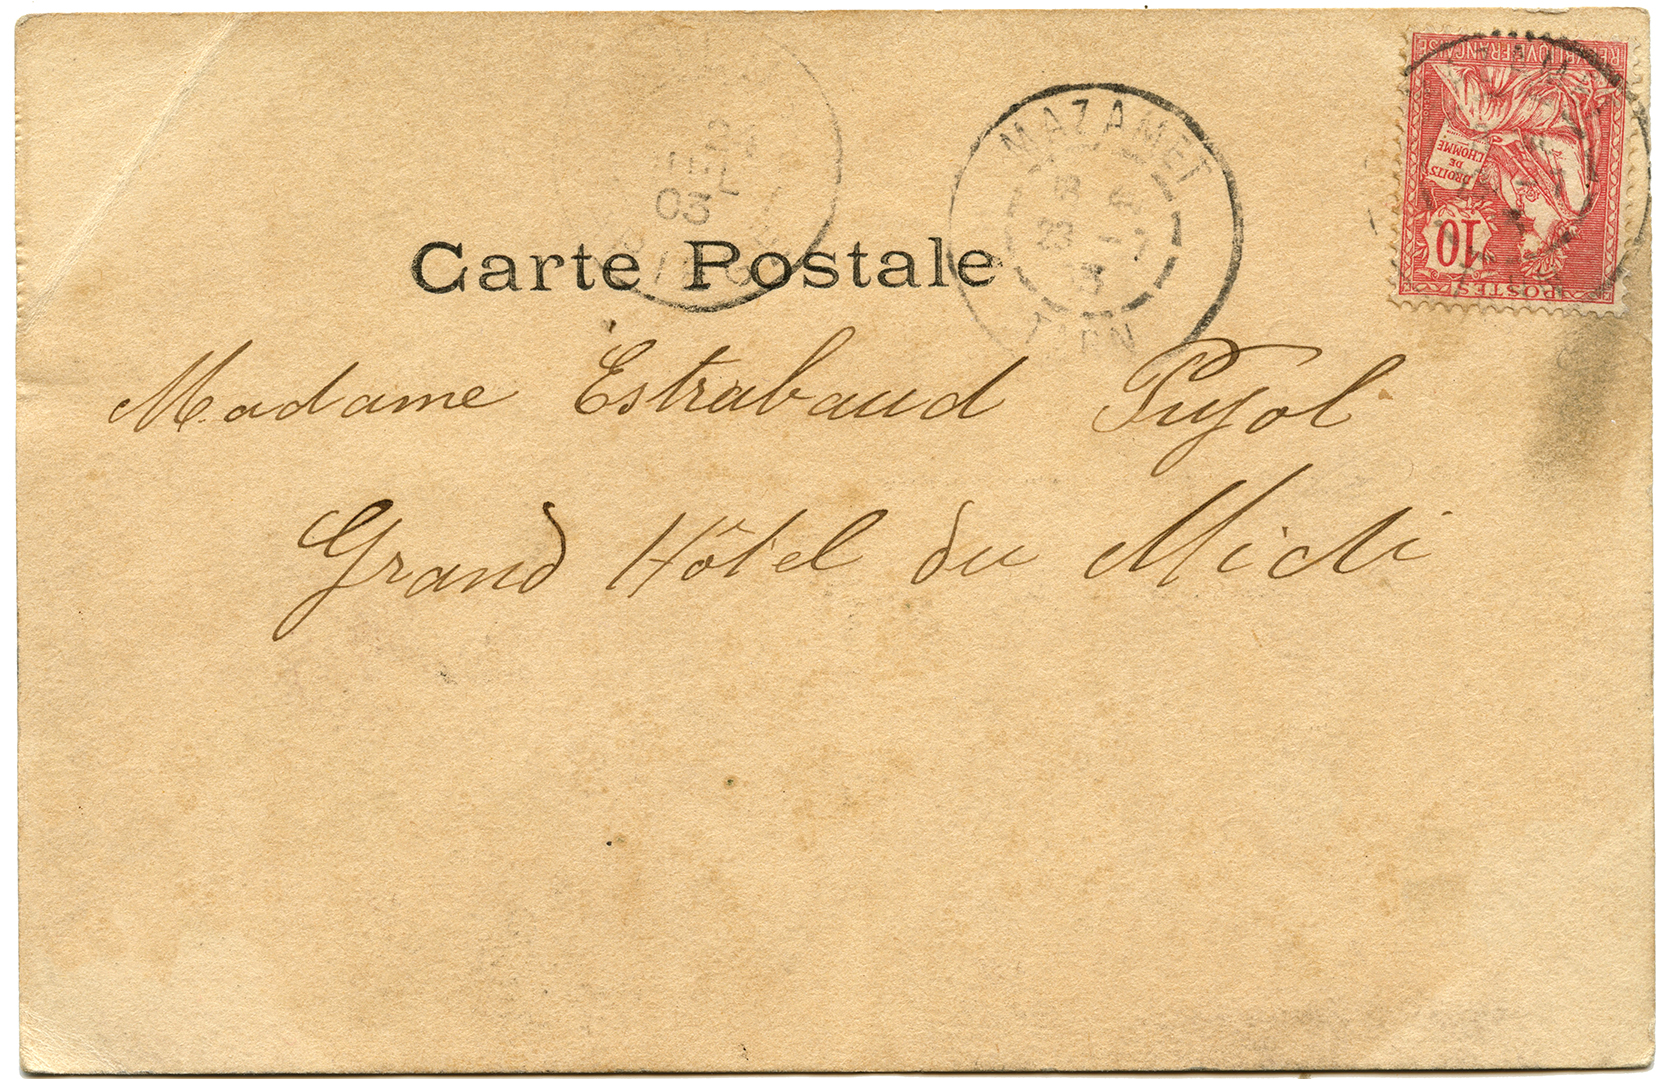 MAZAMET
TARN
03
Carte Postale
REPUBLIQUE FRANÇAISE
DROITS
DE
L'HOMME
10
POSTES
Madame Estrabaud Pujol
Grand Hôtel du Midi